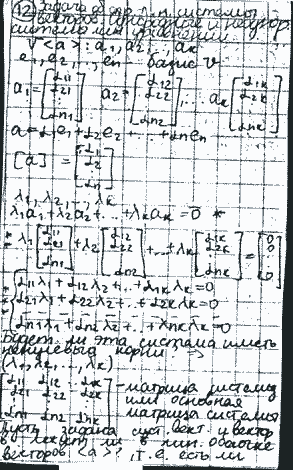 12 Задача о л.з. и л.н. системы
векторов. Однородные системы
V <a>: a₁, a₂, ..., aₖ
e₁, e₂, ..., eₙ базис V
a₁ = [α₁₁ α₂₁ ⋮ αₙ₁] a₂ = [α₁₂ α₂₂ ⋮ αₙ₂], ... aₖ [α₁ₖ α₂ₖ ⋮ αₙₖ]
a = α₁e₁ + α₂e₂ + ... + αₙeₙ
[a] = [α₁ α₂ ⋮ αₙ]
λ₁, λ₂, ..., λₖ
λ₁a₁ + λ₂a₂ + ... + λₖaₖ = 0̄ *
* λ₁ [α₁₁ α₂₁ ⋮ αₙ₁] + λ₂ [α₁₂ α₂₂ ⋮ αₙ₂] + ... + λₖ [α₁ₖ α₂ₖ ⋮ αₙₖ] = [0 0 ⋮ 0]
α₁₁λ₁ + α₁₂λ₂ + ... + α₁ₖλₖ = 0
α₂₁λ₁ + α₂₂λ₂ + ... + α₂ₖλₖ = 0
αₙ₁λ₁ + αₙ₂λ₂ + ... + αₙₖλₖ = 0
Будет ли эта система иметь
ненулевые корни =>
(λ₁, λ₂, ..., λₖ)
[α₁₁ α₁₂ α₁ₖ - матрица системы
α₂₁ α₂₂ α₂ₖ или основная
αₙ₁ αₙ₂ αₙₖ] матрица системы
Пусть задана сист. вект. и вектор
в лежит ли в лин. оболочке
векторов <a>? , т.е. есть ли